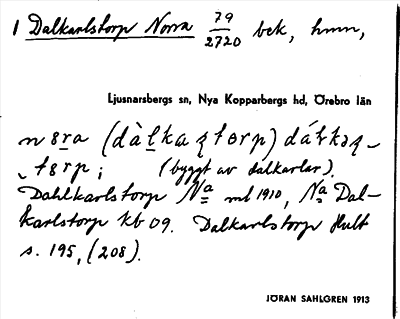 1 Dalkarlstorp Norra 79/2720 bek, hmn,
Ljusnarsbergs sn, Nya Kopparbergs hd, Örebro län
(byggt av dalkarlar).
Dahlkarlstorp Na ml 1910, Na Dal-
karlstorp kb 09. Dalkarlstorp Hult
s. 195, (208).
JÖRAN SAHLGREN 1913